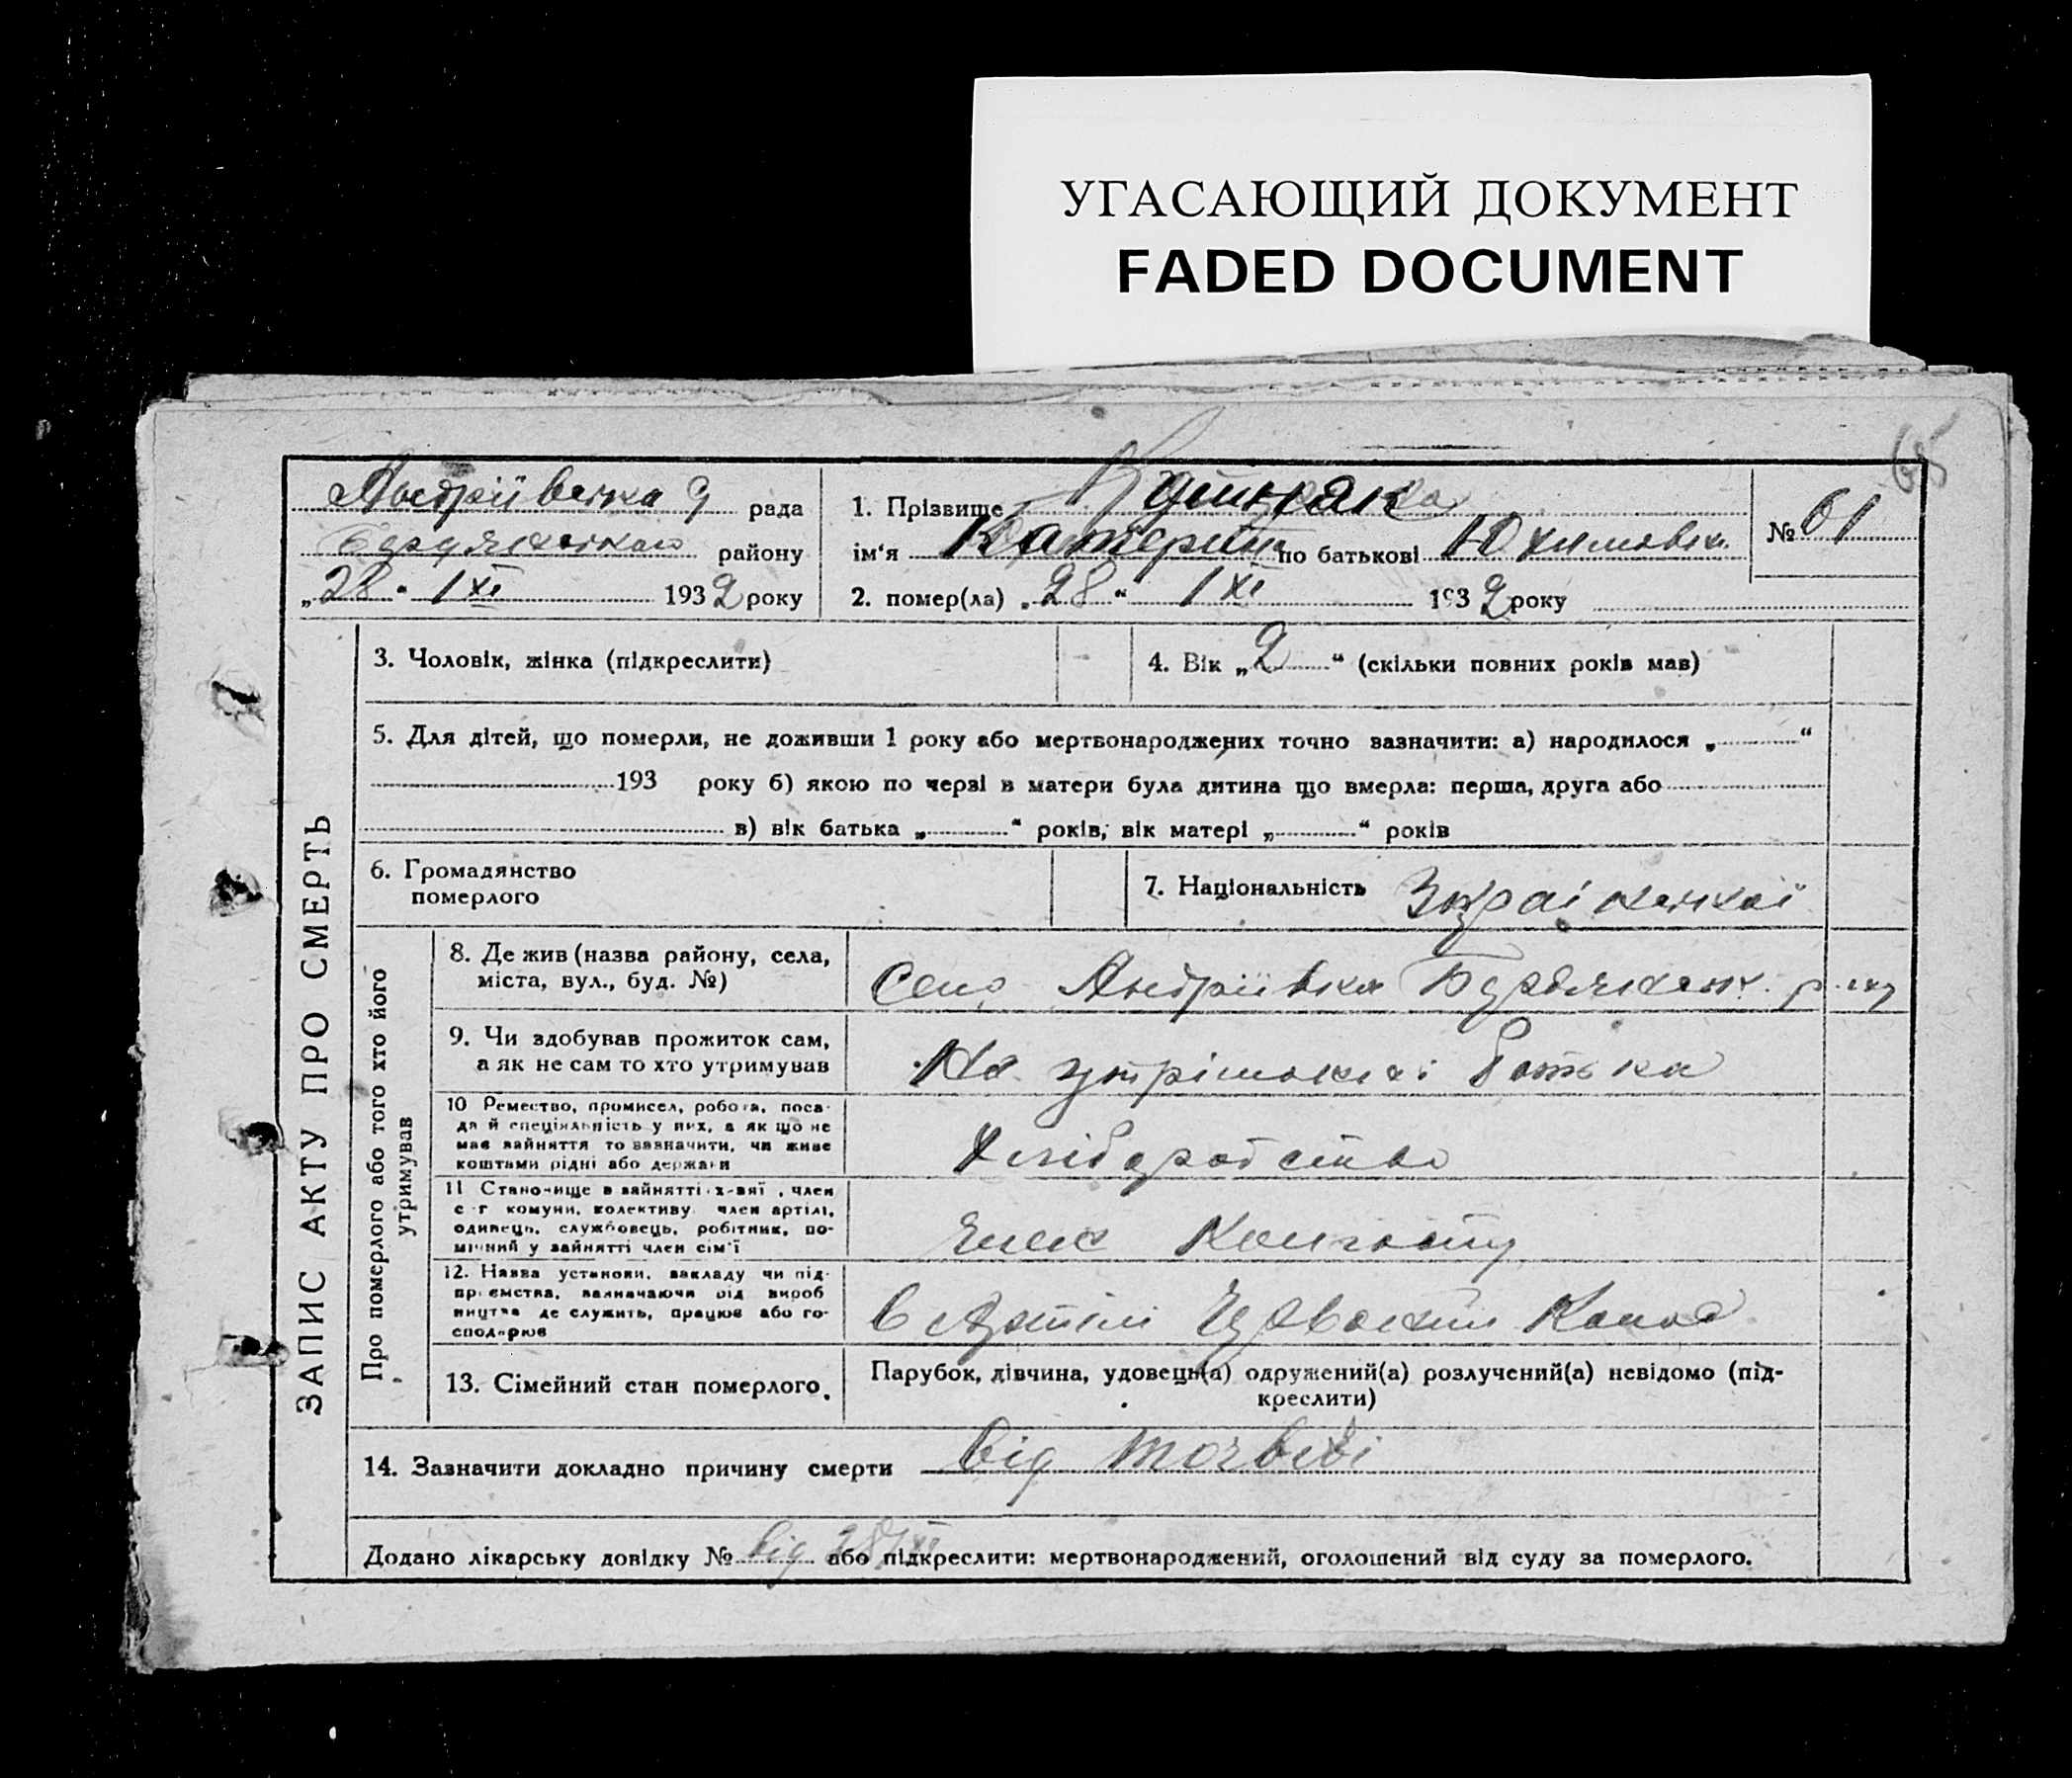 УГАСАЮЩИЙ ДОКУМЕНТ
FADED DOCUMENT
65
Андріївська рада
району
„28" IXI 1932 року
1. Прізвище
ім'я Катерина по батькові Юхимовна
2. помер(ла) „28" IXI 1932 року
№ 61
ЗАПИС АКТУ ПРО СМЕРТЬ
3. Чоловік, жінка (підкреслити)
4. Вік „2" (скільки повних років мав)
5. Для дітей, що померли, не доживши 1 року або мертвонароджених точно зазначити: а) народилося „ "
193 року б) якою по черзі в матери була дитина що вмерла: перша, друга або
в) вік батька „ " років, вік матері „ " років
6. Громадянство
померлого
7. Національність
Про померлого або того хто його
утримував
8. Де жив (назва району, села,
міста, вул., буд. №)
Село Андріївка
9. Чи здобував прожиток сам,
а як не сам то хто утримував
На утрімані батька
10 Ремество, промисел, робота, поса-
да й спеціяльність у них, а як що не
має зайняття то зазначити, чи живе
коштами рідні або держави
Хліборобство
11 Становище в зайнятті х-ва: , член
с-г комуни, колективу член артілі,
одинець, службовець, робітник, по-
мічний у зайнятті член сім'ї
Член Колгоспу
12. Назва установи, закладу чи під-
приємства, зазначаючи від вироб
ництва де служить, працює або го-
сподарює
в Артілі
13. Сімейний стан померлого.
Парубок, дівчина, удовець(а) одружений(а) розлучений(а) невідомо (під-
креслити)
14. Зазначити докладно причину смерти від
Додано лікарську довідку № від 28/XI або підкреслити: мертвонароджений, оголошений від суду за померлого.